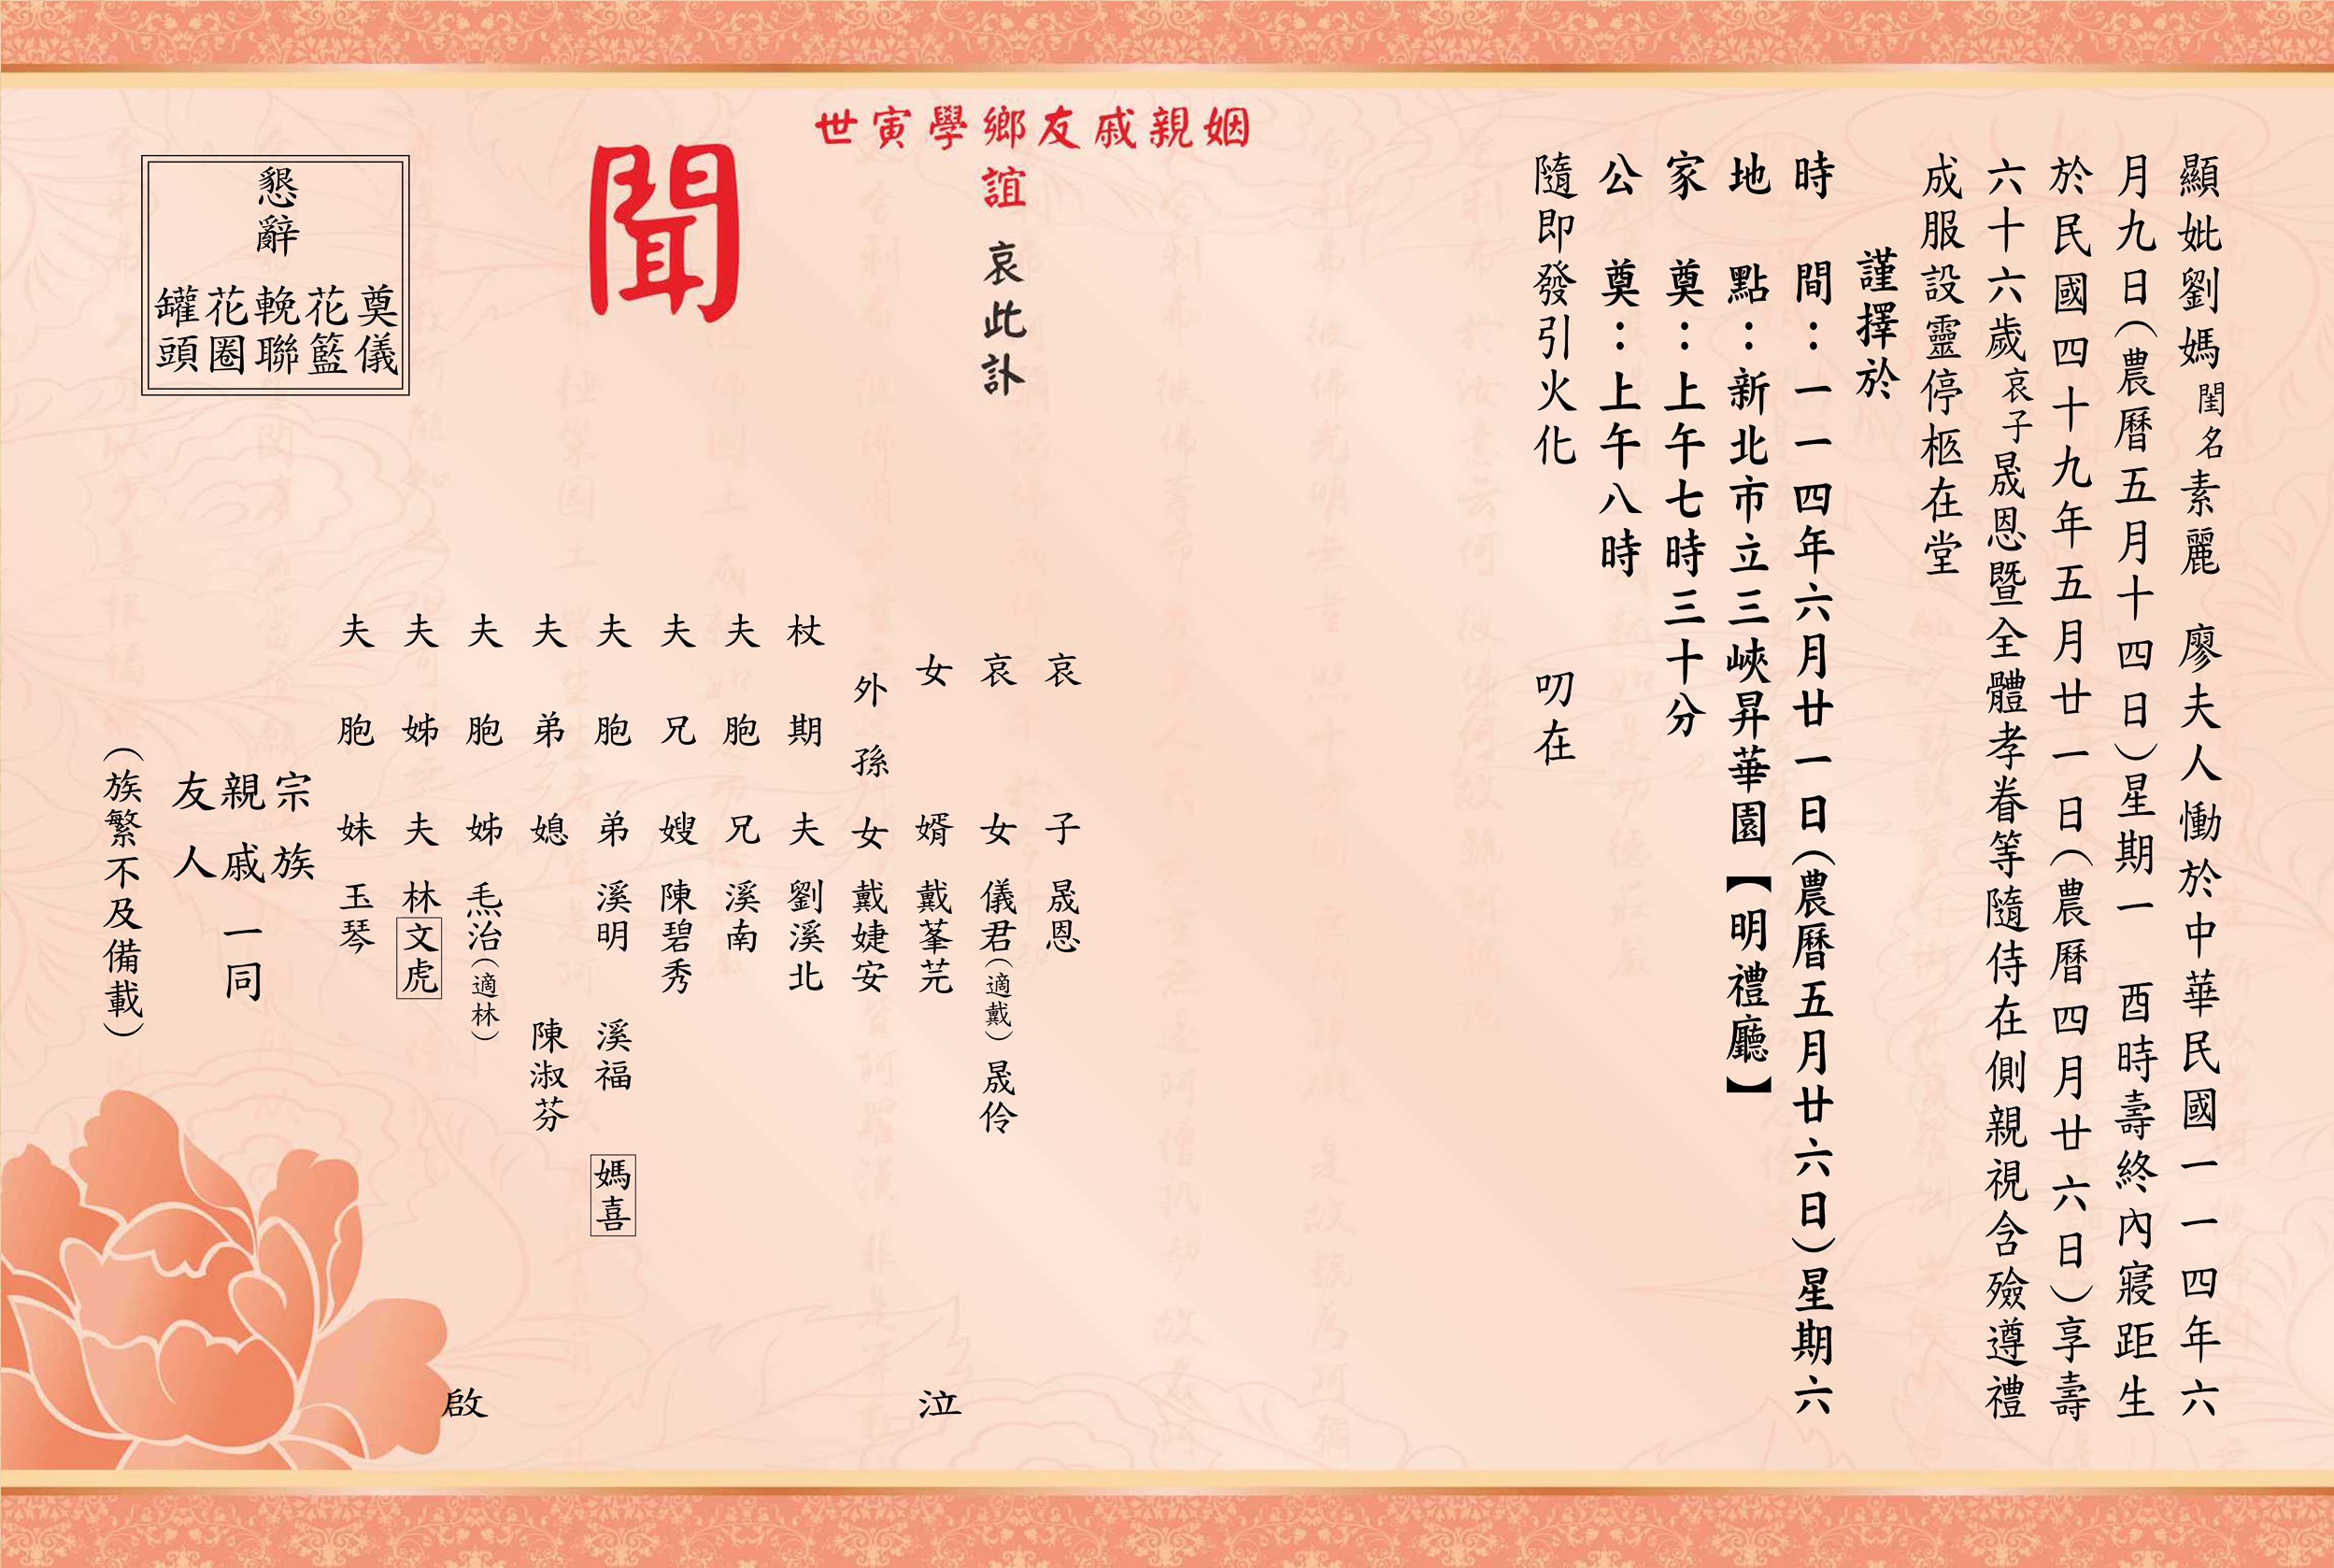 顯妣劉媽閨名素麗 廖夫人慟於中華民國一一四年六
月九日(農曆五月十四日)星期一 酉時壽終內寢距生
於民國四十九年五月廿一日(農曆四月廿六日)享壽
六十六歲哀子晟恩暨全體孝眷等隨侍在側親視含殮遵禮
成服設靈停柩在堂
謹擇於
時 間:一一四年六月廿一日(農曆五月廿六日)星期六
地 點:新北市立三峽昇華園【明禮廳】
家 奠:上午七時三十分
公 奠:上午八時
隨即發引火化 叨在
姻親戚友鄉學寅世
誼 哀此訃
聞
哀子 晟恩
哀女 儀君(適戴) 晟伶
女婿 戴峯芫
外孫女 戴婕安
泣
杖期夫 劉溪北
夫胞兄 溪南
夫兄嫂 陳碧秀
夫胞弟 溪明 溪福 媽喜
夫弟媳 陳淑芬
夫胞姊 𤆬治(適林)
夫姊夫 林文虎
夫胞妹 玉琴
宗族
親戚一同
友人
啟
(族繁不及備載)
懇辭
奠儀
花籃
輓聯
花圈
罐頭